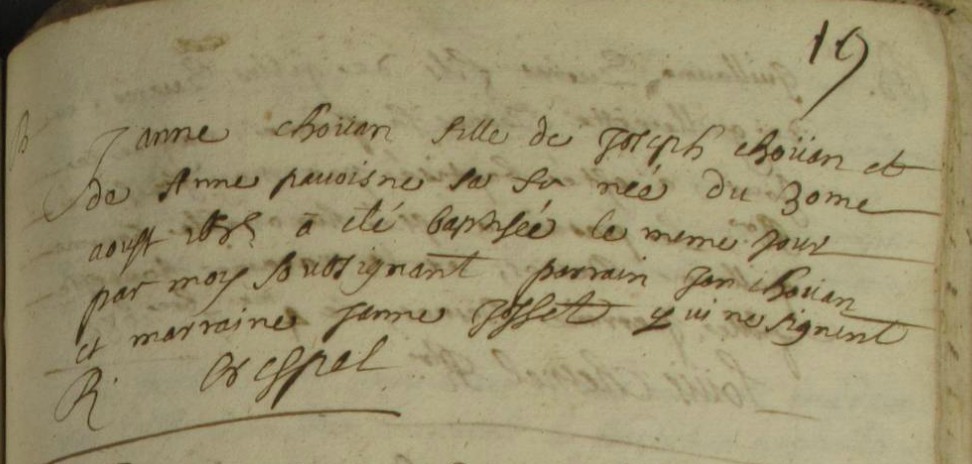 19
B
Janne choüan fille de Joseph choüan et
de Anne pauoisne sa fe neé du 30me
aoust a eté baptisée le meme jour
par moy soubsignant parrain Jan choüan
et marraine Janne Josset qui ne signent
R. Crespel